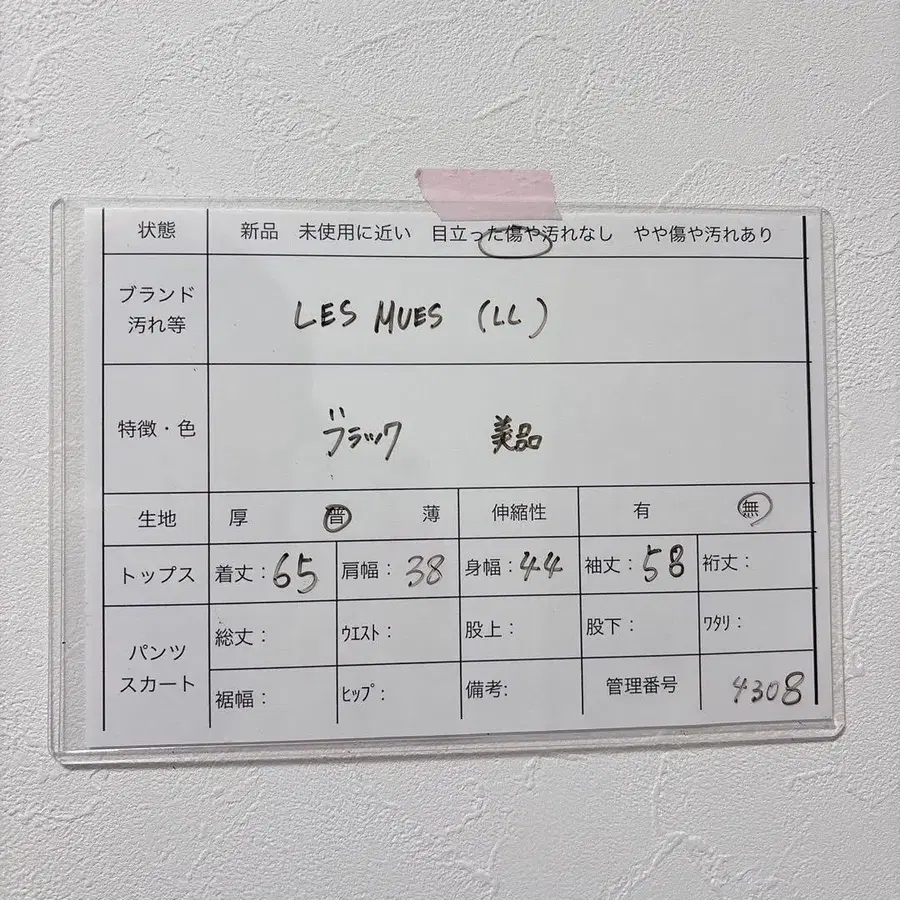 状態 新品 未使用に近い 目立った傷や汚れなし やや傷や汚れあり
ブランド
汚れ等
LES MUES (LL)
特徴・色 ブラック 美品
生地 厚 普 薄 伸縮性 有 無
トップス 着丈：65 肩幅：38 身幅：44 袖丈：58 裄丈：
パンツ
スカート
総丈： ｳｴｽﾄ： 股上： 股下： ﾜﾀﾘ：
裾幅： ﾋｯﾌﾟ： 備考: 管理番号 4308